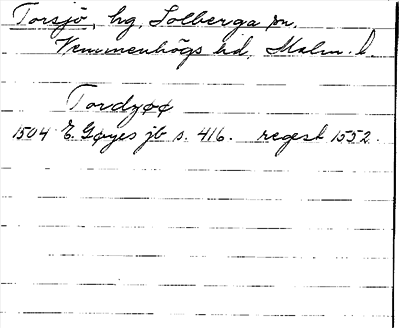 Torsjö, hg, Solberga sn.
Vemmenhögs hd, Malm. l.
Tordzøø
1504 E. Gøyes jb s. 416. regest 1552.